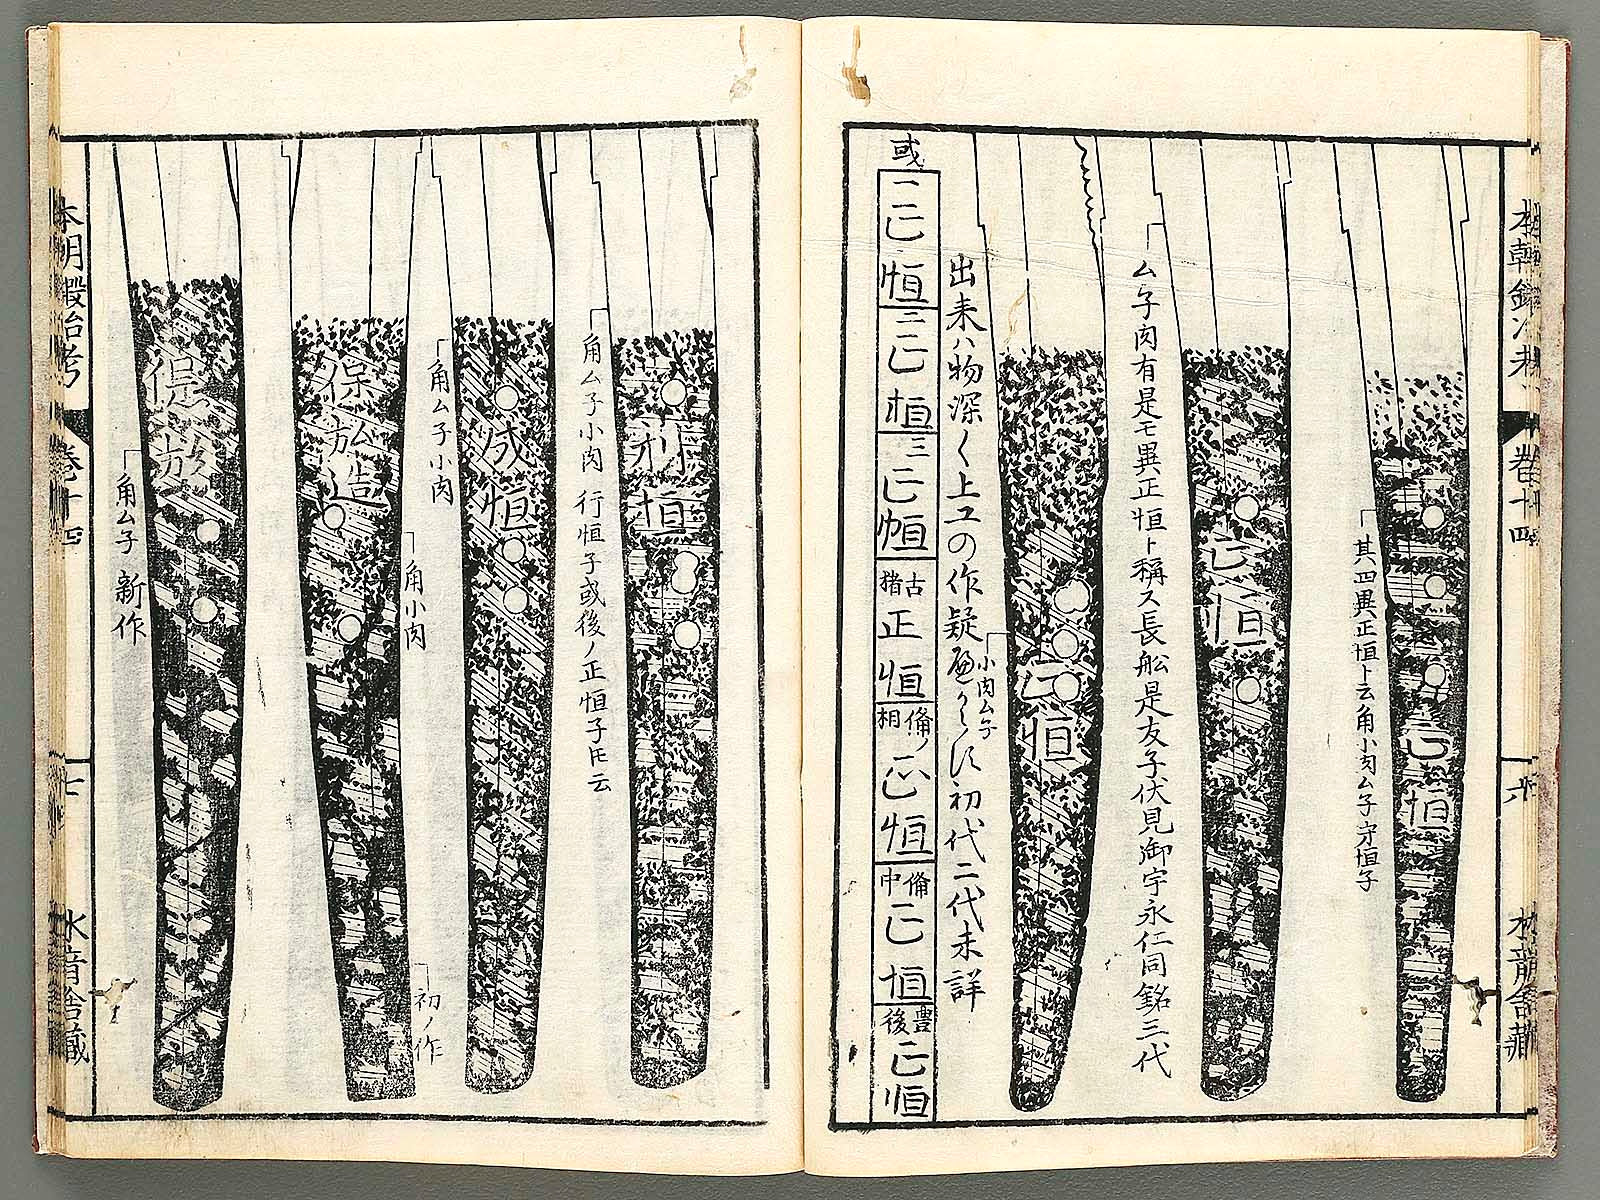 本朝鍛冶考
巻十四
六
水龍舎蔵
其四異正恒ト云角小肉ム子守恒子
正恒
正恒
ム子肉有是モ異正恒ト稱ス長舩是友子伏見御宇永仁同銘三代
正恒
小肉ム子
出来ハ物深く上工の作疑
初代二代未詳
或
一正恒
二正恒
三正恒
古猪
正恒
備ノ相
正恒
備中
正恒
豊後
正恒
利恒
角ム子小肉 行恒子或後ノ正恒子
云
成恒
角ム子小肉
保
造
角小肉
初ノ作
保
角ム子 新作
本朝鍛冶考
巻十四
七
水龍舎蔵